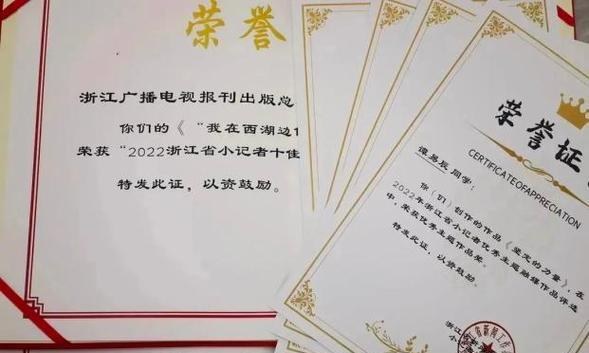 荣誉
浙江广播电视报刊出版总
你们的《“我在西湖边
荣获“2022浙江省小记者十佳
特发此证，以资鼓励。
荣誉证
CERTIFICATEOFAPPRECIATION
谭易辰 同学：
你（们）创作的作品《坚定的力量》，在
2022年浙江省小记者优秀主题融媒作品评选
中，荣获优秀主题作品奖。
特发此证，以资鼓励。
浙江
省新闻工作
小